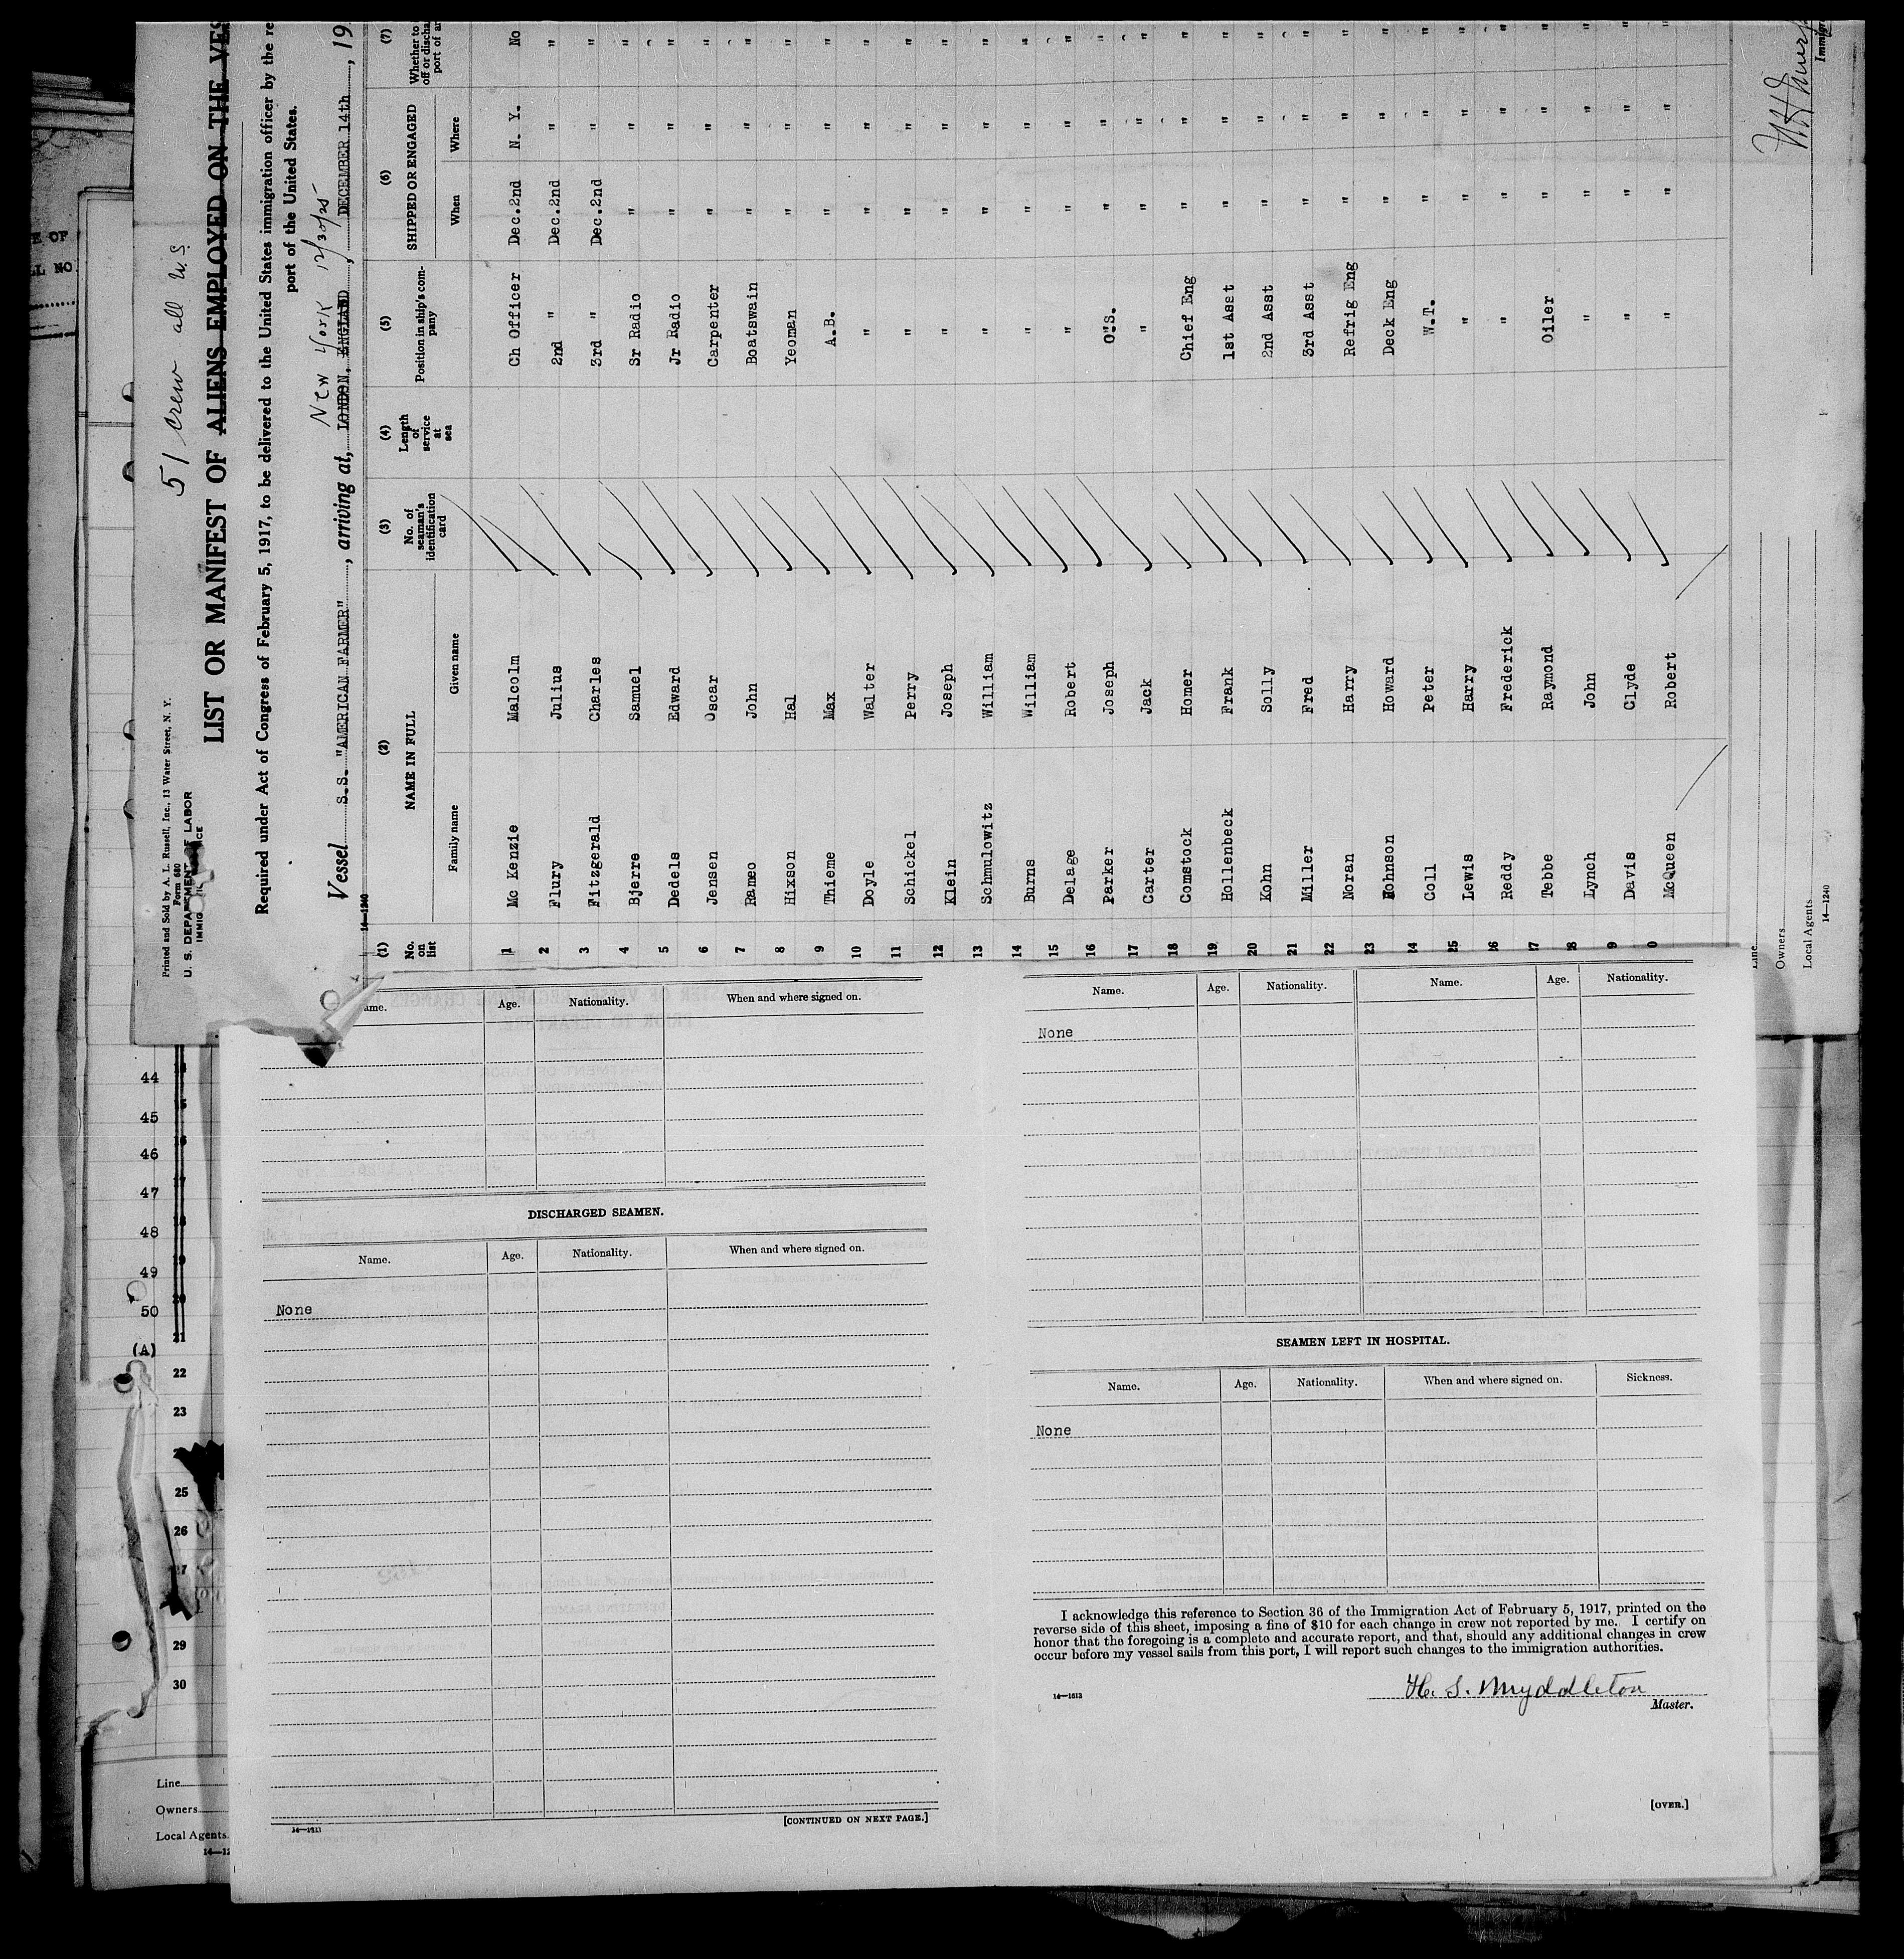 51 crew all U.S.
Printed and Sold by A. L. Russell, Inc., 13 Water Street, N. Y.
Form 680
U. S. DEPARTMENT OF LABOR
LIST OR MANIFEST OF ALIENS EMPLOYED ON THE
Required under Act of Congress of February 5, 1917, to be delivered to the United States immigration officer by the
port of the United States.
New York 12/30/25
Vessel S.S. "AMERICAN FARMER", arriving at, LONDON, ENGLAND, DECEMBER 14th, 19
14—1240
(1) (2) (3) (4) (5) (6) (7)
No. on list NAME IN FULL No. of seaman's identification card Length of service at sea Position in ship's company SHIPPED OR ENGAGED Whether to
off or
port of
Family name Given name When Where
1 Mc Kenzie Malcolm Ch Officer Dec.2nd N. Y. No
2 Flury Julius 2nd " Dec.2nd " "
3 Fitzgerald Charles 3rd " Dec.2nd " "
4 Bjerre Samuel Sr Radio " " "
5 Dedels Edward Jr Radio " " "
6 Jensen Oscar Carpenter " " "
7 Rameo John Boatswain " " "
8 Hixson Hal Yeoman " " "
9 Thieme Max A.B. " " "
10 Doyle Walter " " " "
11 Schickel Perry " " " "
12 Klein Joseph " " " "
13 Schmulowitz William " " " "
14 Burns William " " " "
15 Delage Robert " " " "
16 Parker Joseph O.S. " " "
17 Carter Jack " " " "
18 Comstock Homer Chief Eng " " "
19 Hollenbeck Frank 1st Asst " " "
20 Kohn Solly 2nd Asst " " "
21 Miller Fred 3rd Asst " " "
22 Noran Harry Refrig Eng " " "
23 Johnson Howard Deck Eng " " "
24 Coll Peter W.T. " " "
25 Lewis Harry " " " "
26 Reddy Frederick " " " "
27 Tebbe Raymond Oiler " " "
28 Lynch John " " " "
9 Davis Clyde " " " "
0 McQueen Robert " " " "
Line
Owners
Local Agents
14—1240
44
45
46
47
48
49
50
(A)
22
23
25
26
27
29
30
Line
Owners
Local Agents
Age. Nationality. When and where signed on.
DISCHARGED SEAMEN.
Name. Age. Nationality. When and where signed on.
None
[CONTINUED ON NEXT PAGE.]
Name. Age. Nationality. Name. Age. Nationality.
None
SEAMEN LEFT IN HOSPITAL.
Name. Age. Nationality. When and where signed on. Sickness.
None
I acknowledge this reference to Section 36 of the Immigration Act of February 5, 1917, printed on the
reverse side of this sheet, imposing a fine of $10 for each change in crew not reported by me. I certify on
honor that the foregoing is a complete and accurate report, and that, should any additional changes in crew
occur before my vessel sails from this port, I will report such changes to the immigration authorities.
H. S. Myddleton
14—1613
Master.
[OVER.]